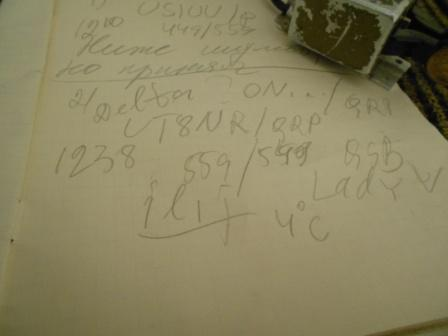 US1UU/P
1210 449/559
Ниже шума
но принял
2) Delta ON.../QRP
UT8NR/QRP
1238 559/599 QSB
Lady V
4°C